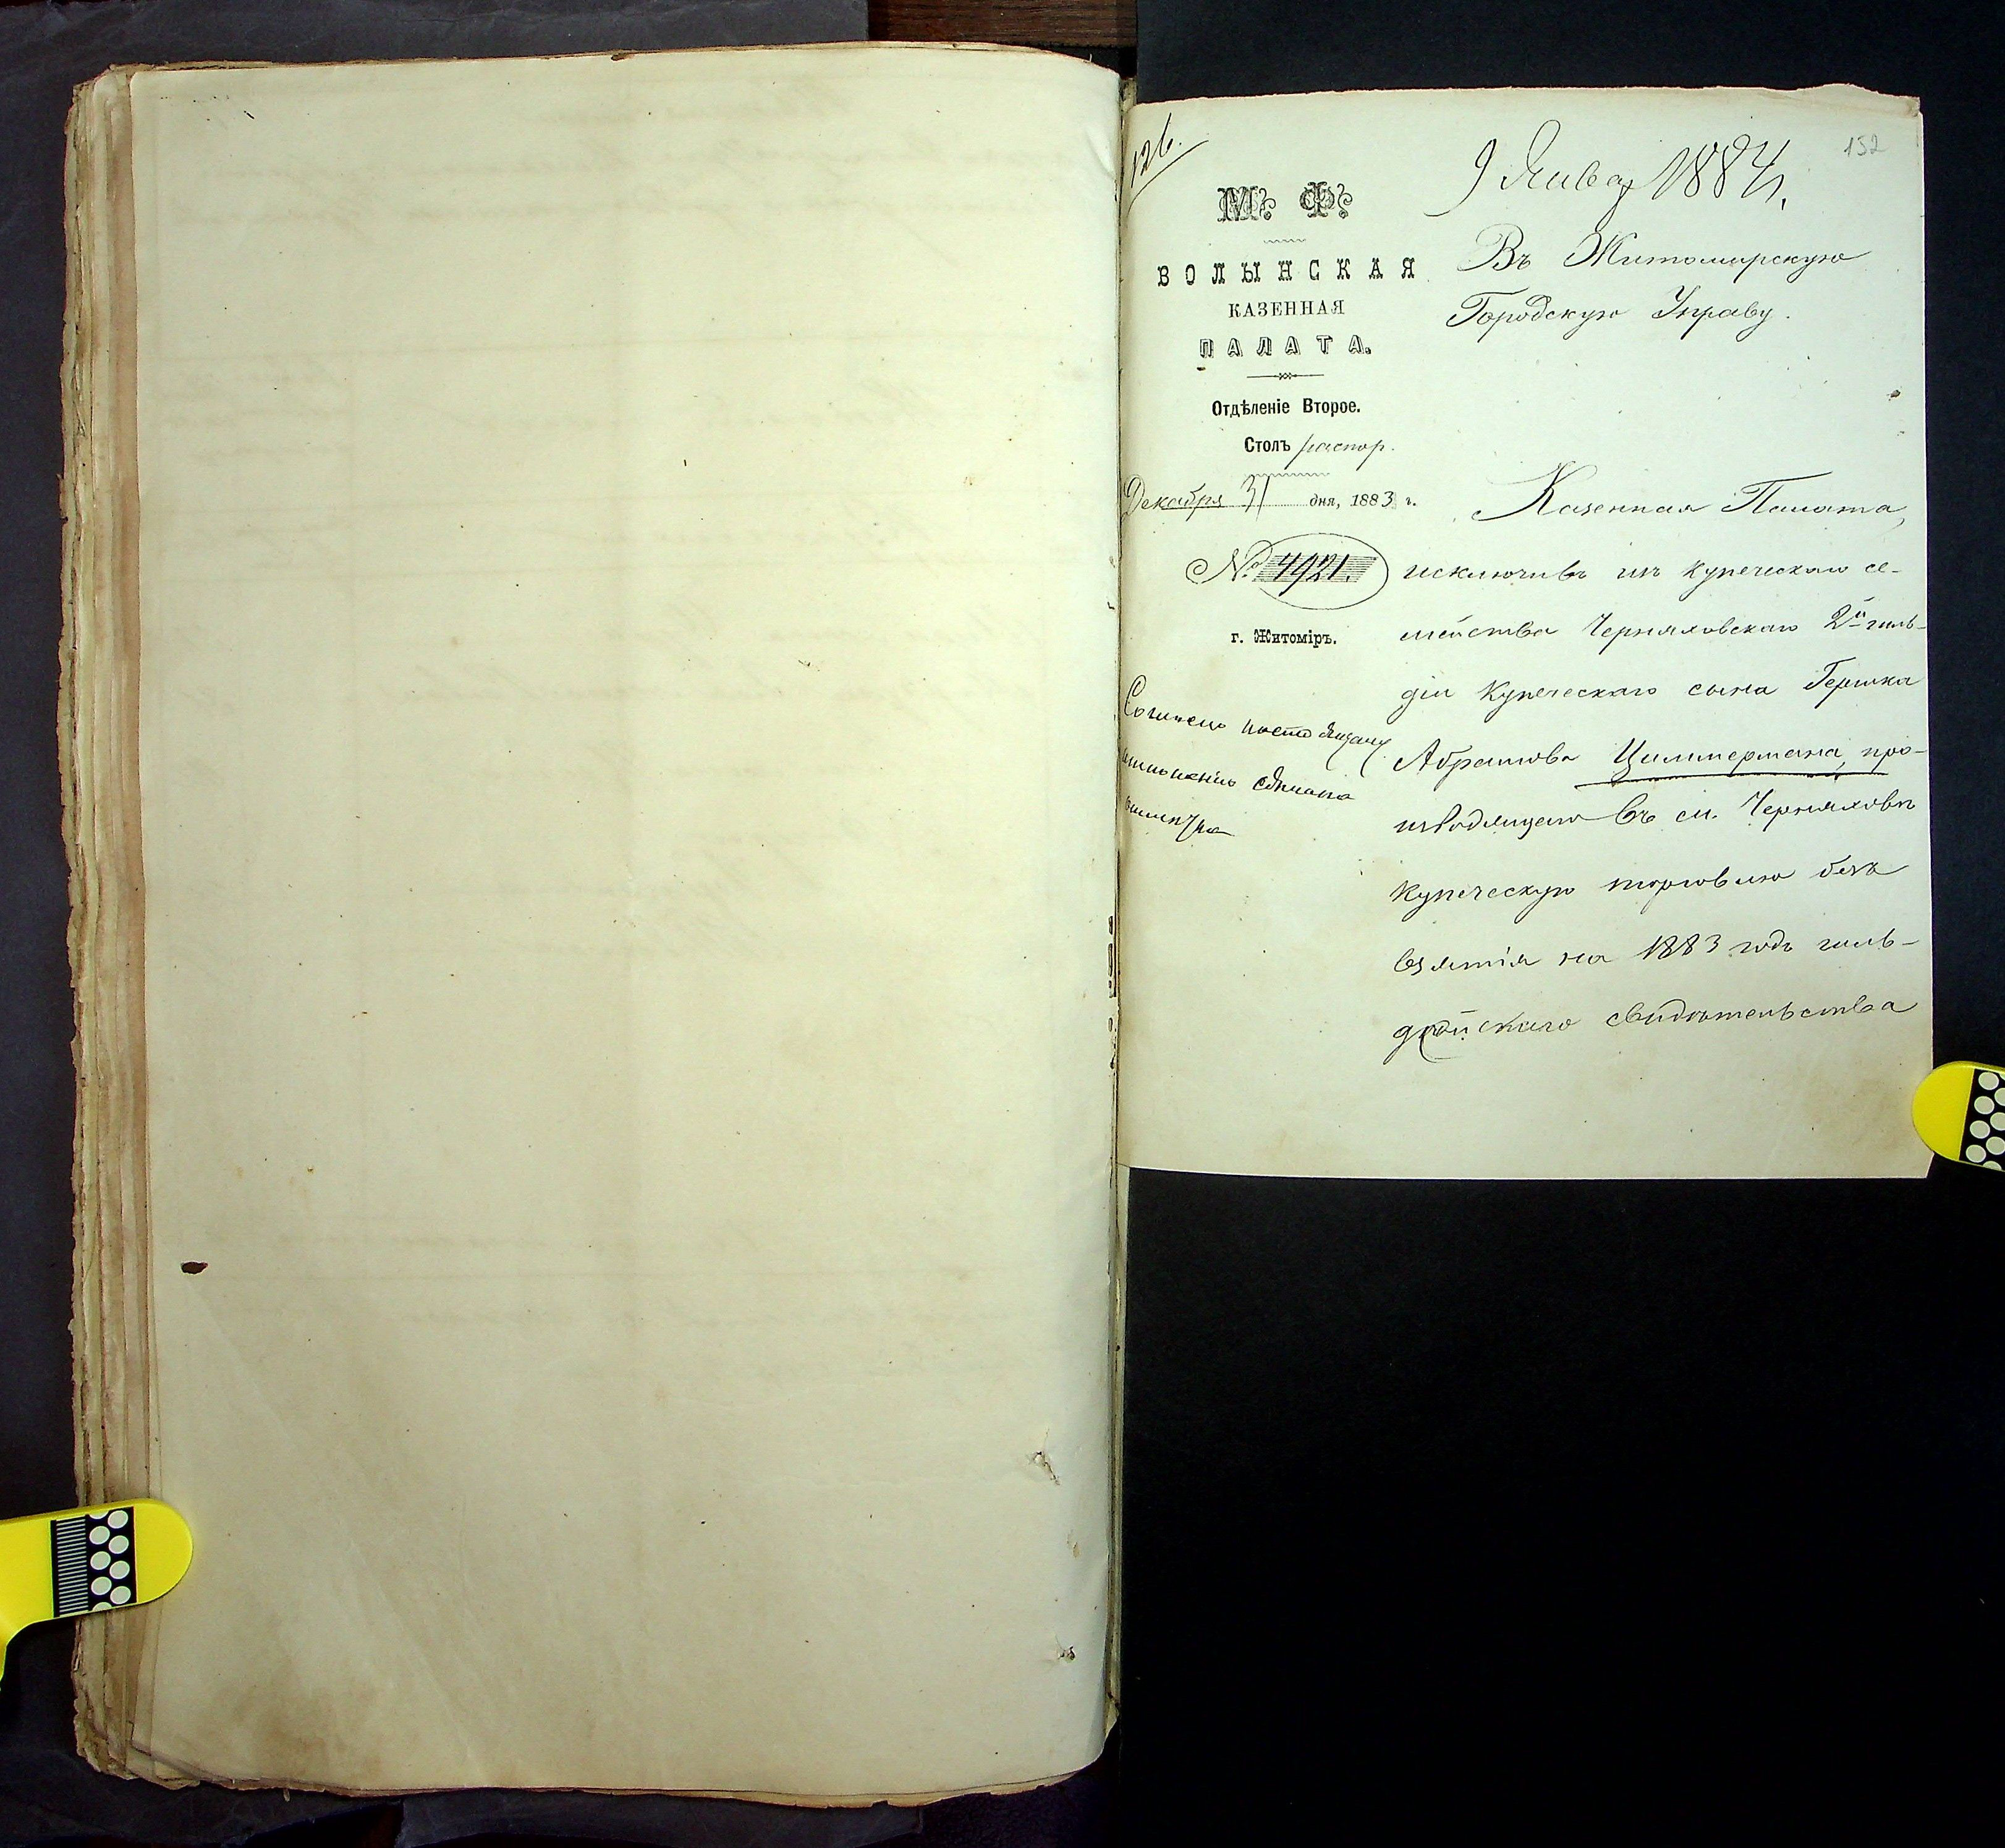 126.
152
9 Январ 1884 г.
М. Ф.
ВОЛЫНСКАЯ
КАЗЕННАЯ
ПАЛАТА.
Отдѣленіе Второе.
Столъ распор.
Декабря 31 дня, 1883 г.
№ 4921.
г. Житоміръ.
Въ Житомирскую
Городскую Управу.
Казенная Палата,
исключивъ изъ купеческаго се-
мейства Черняховскаго 2й гиль-
діи купеческаго сына Гершка
Абрамова Циммермана, про-
изводящаго въ м. Черняховѣ
купеческую торговлю безъ
взятія на 1883 годъ гиль-
дейскаго свидѣтельства